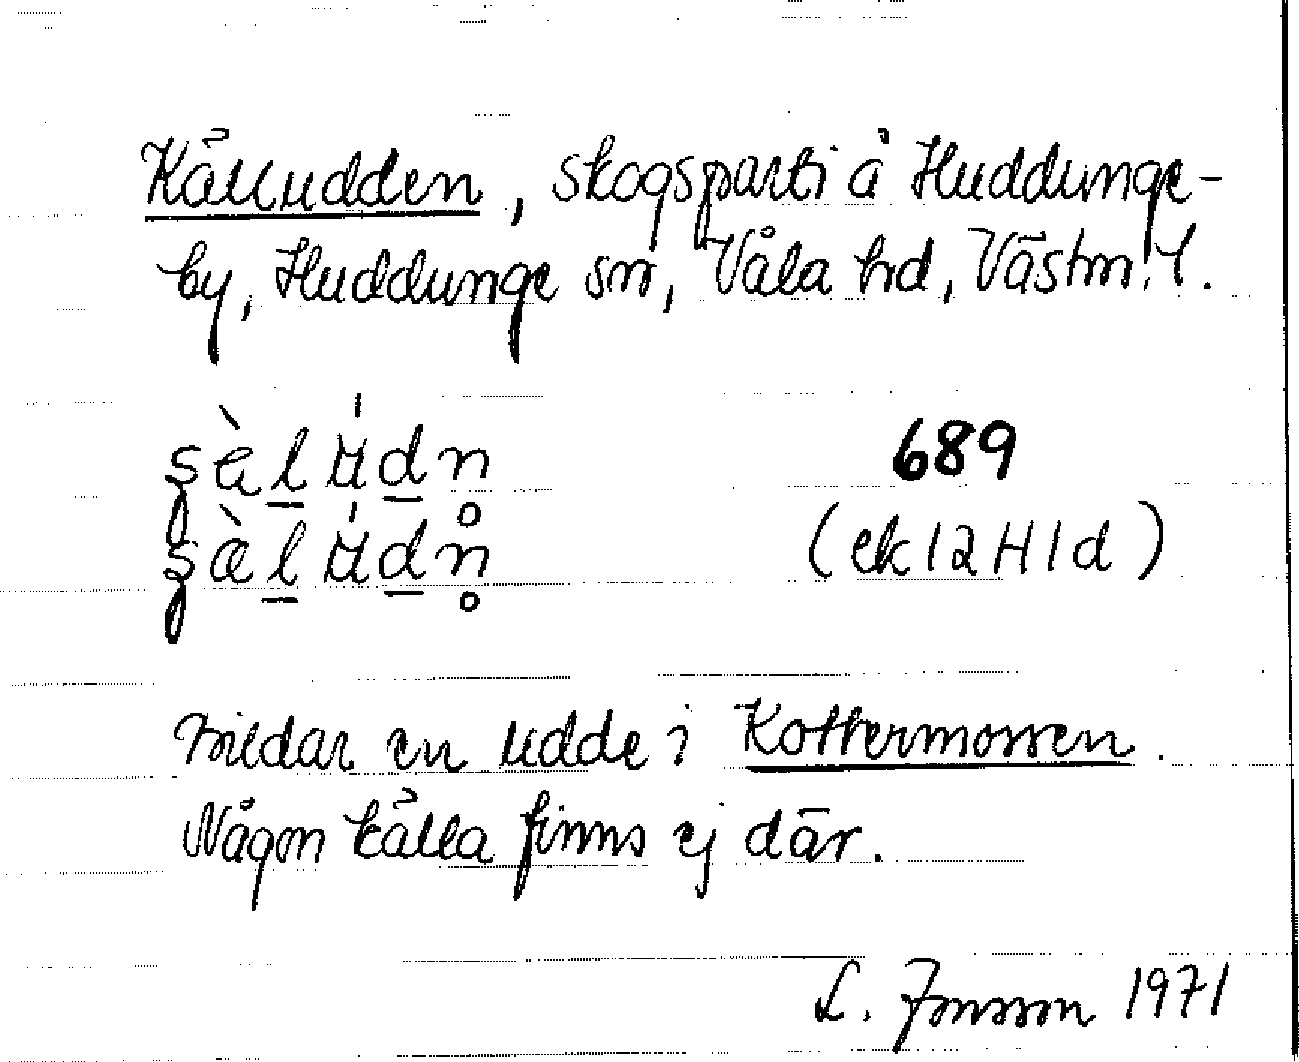 Källudden, skogsparti å Huddunge-
by, Huddunge sn, Våla hd, Västm. l.
689
(ek 12 H 1 d)
bildar en udde i Kottermossen.
Någon källa finns ej där.
L. Jonsson 1971